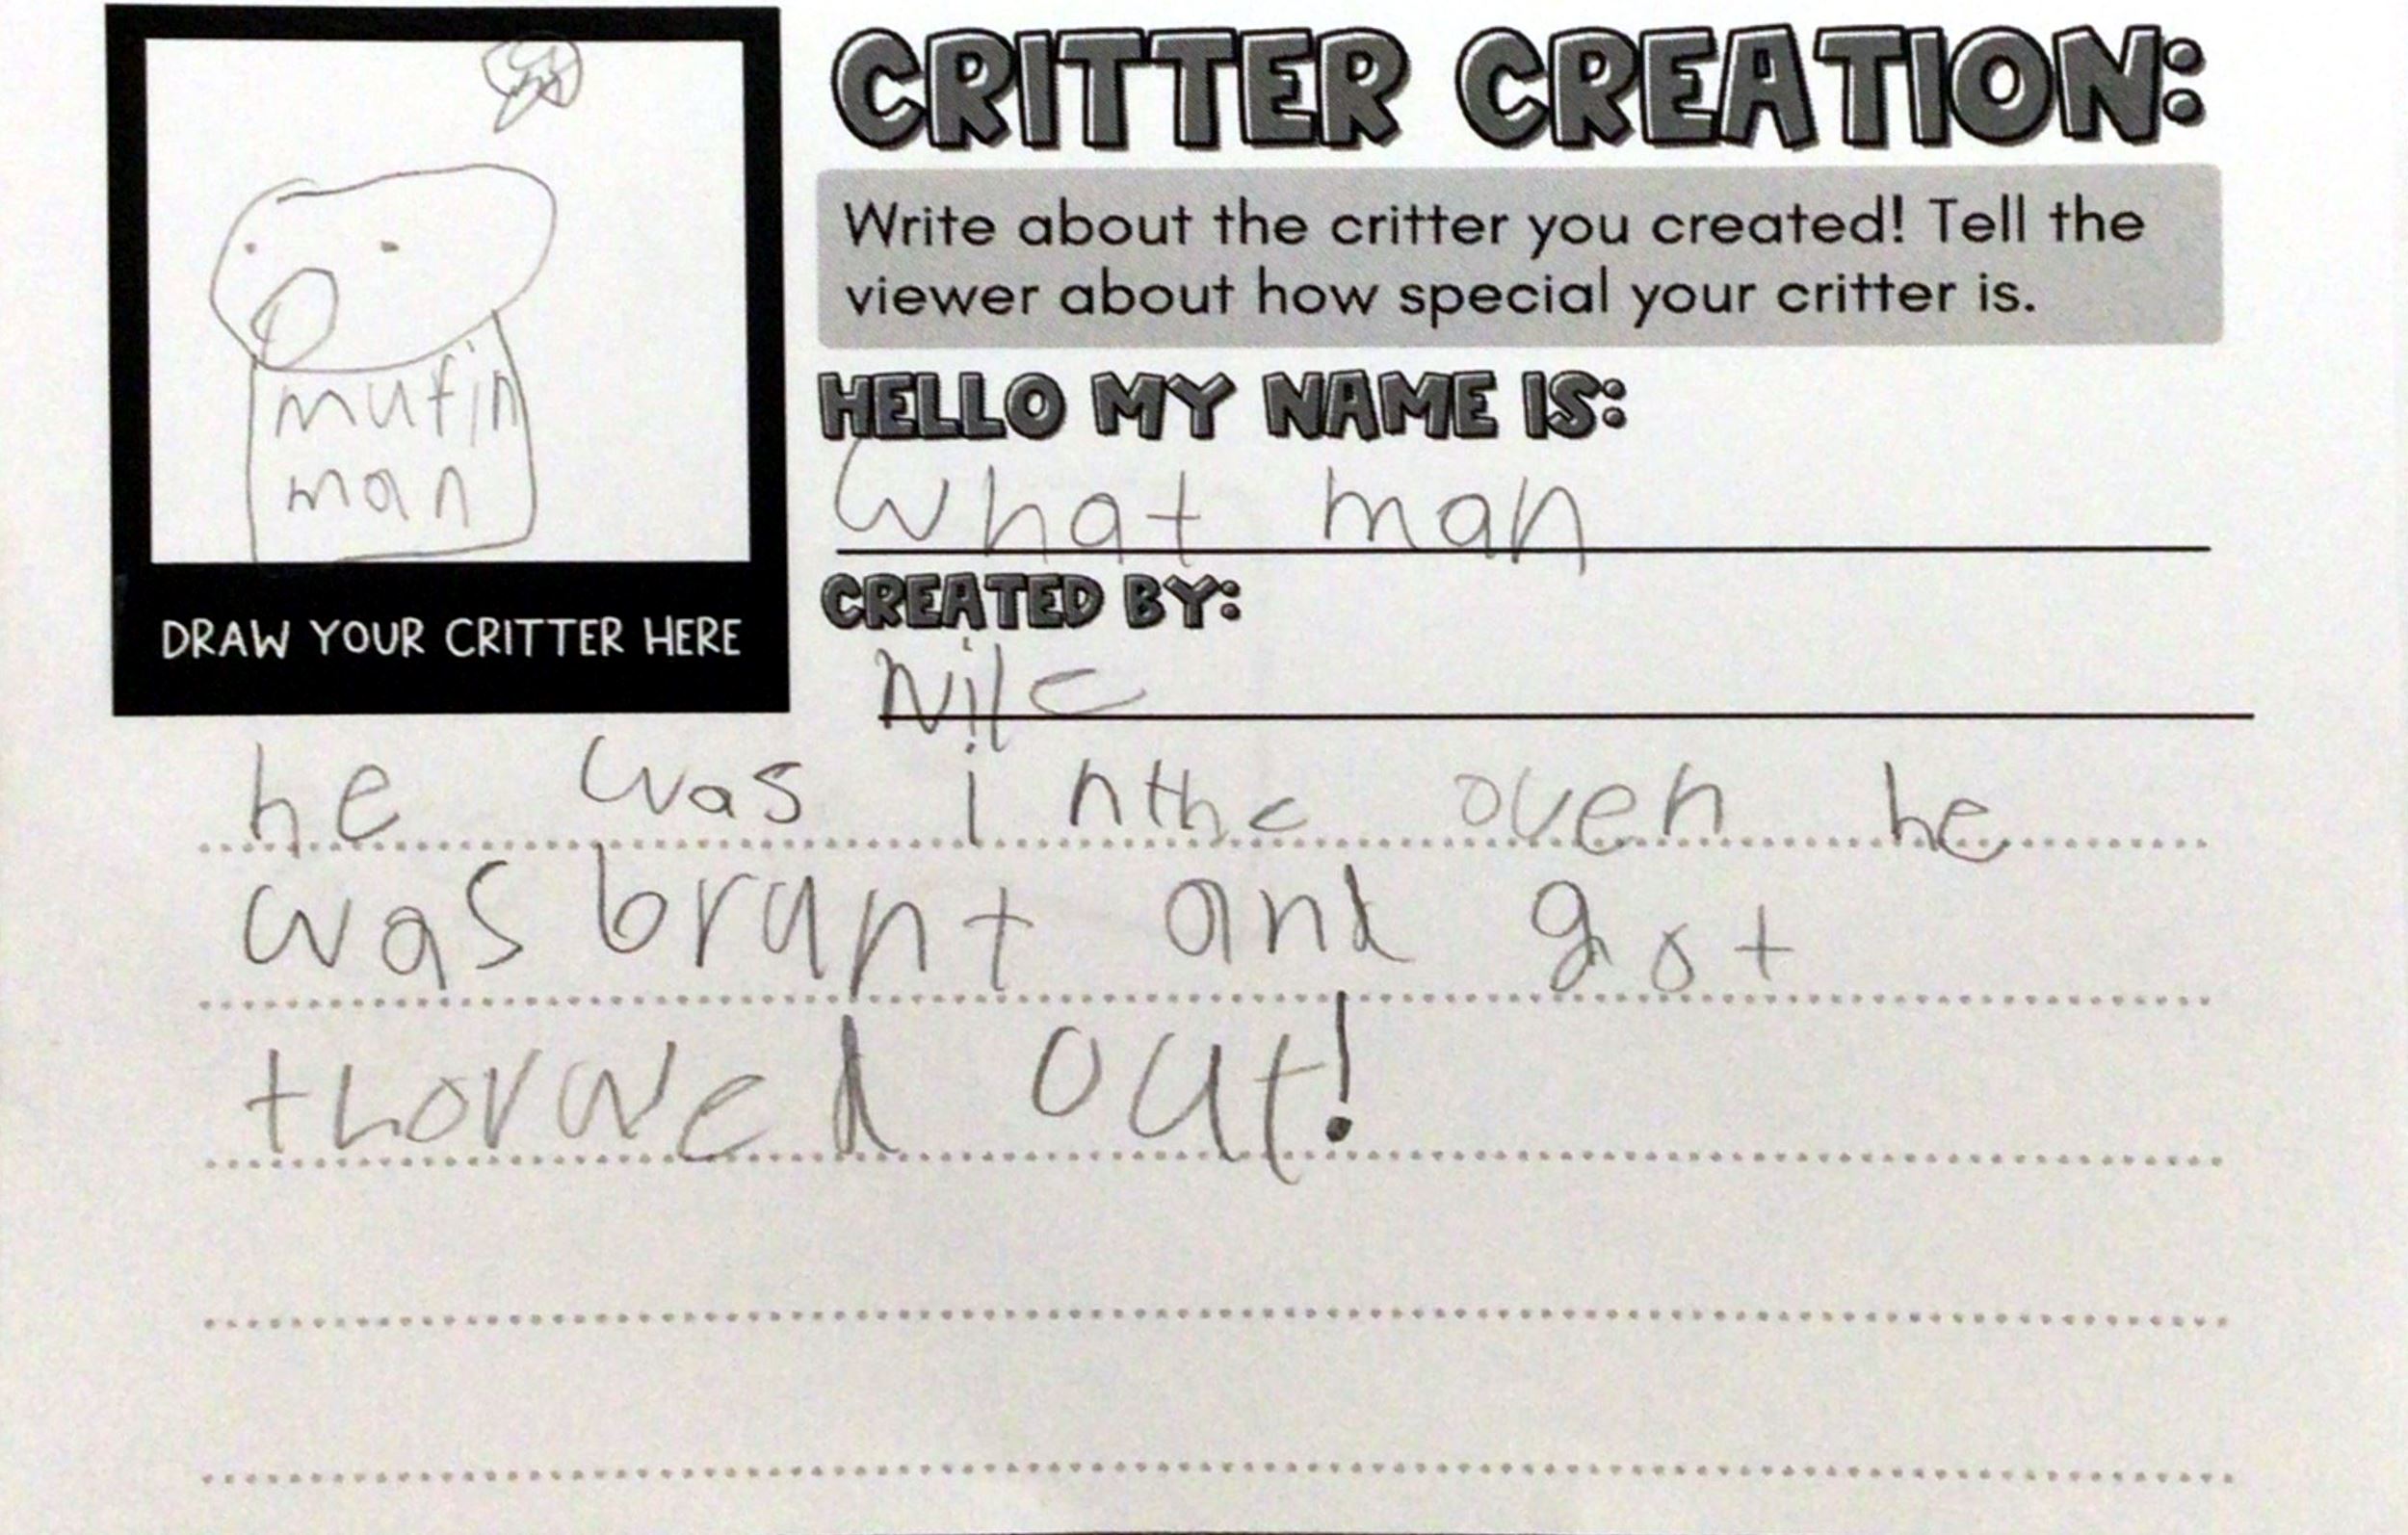 CRITTER CREATION:
Write about the critter you created! Tell the
viewer about how special your critter is.
HELLO MY NAME IS:
What man
CREATED BY:
Nile
mufin
man
DRAW YOUR CRITTER HERE
he was inthe oven he
was brunt and got
thorwed out!